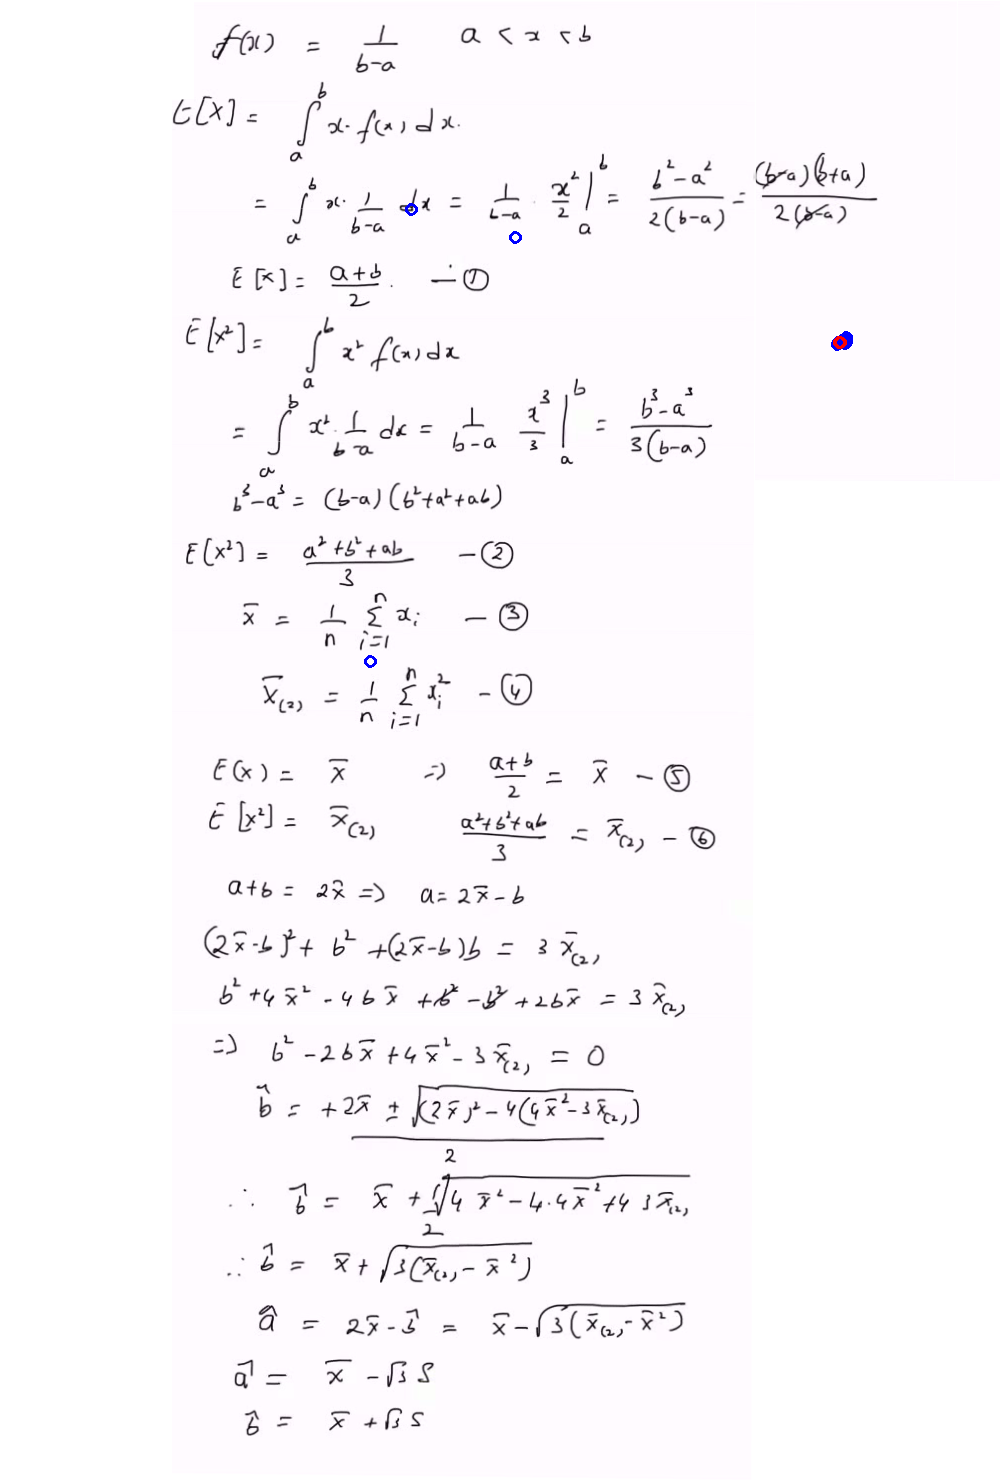 f(x) = 1/(b-a)   a < x < b
E[X] = ∫_a^b x · f(x) dx.
= ∫_a^b x · 1/(b-a) dx = 1/(b-a) · x²/2 |_a^b = (b²-a²)/(2(b-a)) = ((b-a)(b+a))/(2(b-a))
E[x] = (a+b)/2 . — ①
E[x²] = ∫_a^b x² f(x) dx
= ∫_a^b x² · 1/(b-a) dx = 1/(b-a) x³/3 |_a^b = (b³-a³)/(3(b-a))
b³-a³ = (b-a)(b²+a²+ab)
E[x²] = (a²+b²+ab)/3 — ②
x̄ = 1/n Σ_{i=1}^n x_i — ③
x̄_(2) = 1/n Σ_{i=1}^n x_i² — ④
E(x) = x̄ => (a+b)/2 = x̄ — ⑤
E[x²] = x̄_(2)   (a²+b²+ab)/3 = x̄_(2) — ⑥
a+b = 2x̄ => a = 2x̄-b
(2x̄-b)² + b² + (2x̄-b)b = 3 x̄_(2)
b² + 4x̄² - 4bx̄ + b² - b² + 2bx̄ = 3 x̄_(2)
=> b² - 2bx̄ + 4x̄² - 3x̄_(2) = 0
b̂ = (+2x̄ ± √((2x̄)² - 4(4x̄² - 3x̄_(2))))/2
∴ b̂ = x̄ + √(4x̄² - 4·4x̄² + 4 3x̄_(2))/2
∴ b̂ = x̄ + √(3(x̄_(2) - x̄²))
â = 2x̄ - b̂ = x̄ - √(3(x̄_(2) - x̄²))
â = x̄ - √3 S
b̂ = x̄ + √3 S